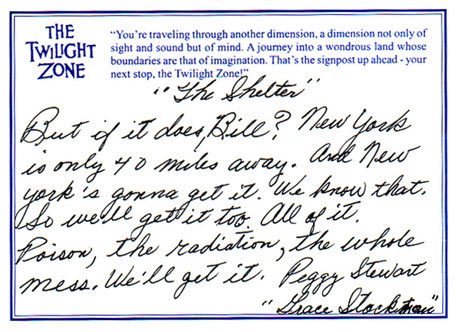 THE
TWILIGHT
ZONE
"You're traveling through another dimension, a dimension not only of
sight and sound but of mind. A journey into a wondrous land whose
boundaries are that of imagination. That's the signpost up ahead - your
next stop, the Twilight Zone!"
"The Shelter"
But if it does, Bill? New York
is only 40 miles away. And New
york's gonna get it. We know that.
So we'll get it too. All of it.
Poison, the radiation, the whole
mess. We'll get it. Peggy Stewart
"Grace Stockman"